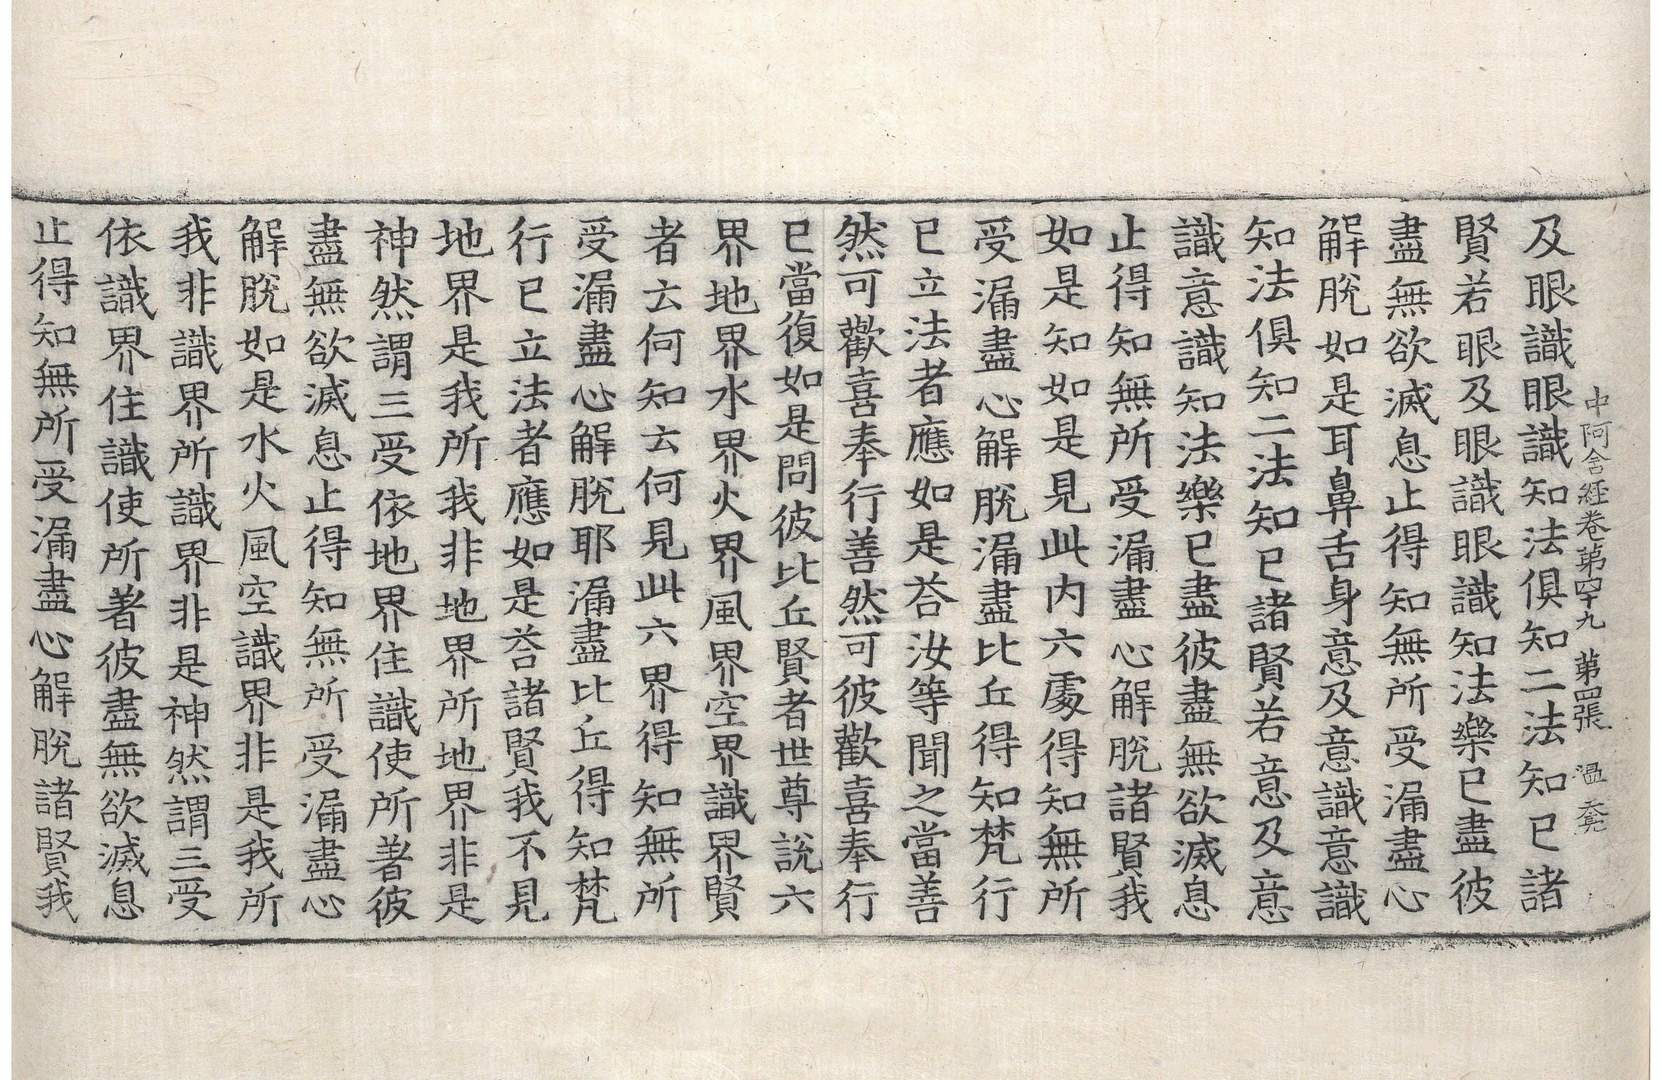 中阿含経卷第四十九 第四張 温
及眼識眼識知法俱知二法知已諸
賢若眼及眼識眼識知法樂已盡彼
盡無欲滅息止得知無所受漏盡心
解脫如是耳鼻舌身意及意識意識
知法俱知二法知已諸賢若意及意
識意識知法樂已盡彼盡無欲滅息
止得知無所受漏盡心解脫諸賢我
如是知如是見此內六處得知無所
受漏盡心解脫漏盡比丘得知梵行
已立法者應如是荅汝等聞之當善
然可歡喜奉行善然可彼歡喜奉行
已當復如是問彼比丘賢者世尊說六
界地界水界火界風界空界識界賢
者云何知云何見此六界得知無所
受漏盡心解脫耶漏盡比丘得知梵
行已立法者應如是荅諸賢我不見
地界是我所我非地界所地界非是
神然謂三受依地界住識使所著彼
盡無欲滅息止得知無所受漏盡心
解脫如是水火風空識界非是我所
我非識界所識界非是神然謂三受
依識界住識使所著彼盡無欲滅息
止得知無所受漏盡心解脫諸賢我